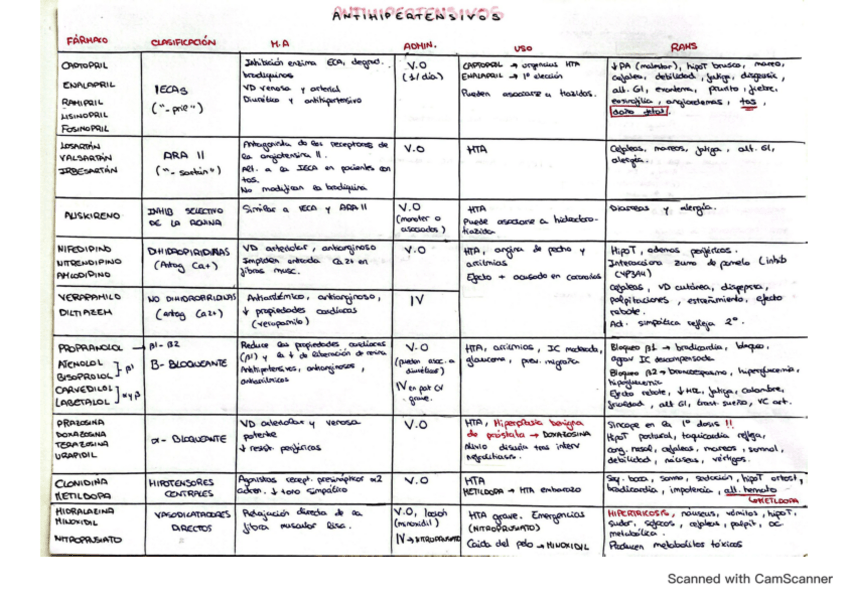 ANTIHIPERTENSIVOS
FÁRMACO CLASIFICACIÓN M.A ADMIN. USO RAMS
CAPTOPRIL
ENALAPRIL
RAMIPRIL
LISINOPRIL
FOSINOPRIL
IECAS
("-pril")
Inhibición enzima ECA, degrad.
bradiquinas
VD venosa y arterial
Diurético y antihipertensivo
V.O
(1/día)
CAPTOPRIL → urgencias HTA
ENALAPRIL → 1ª elección
Pueden asociarse a tiazidas.
↓PA (malestar), hipoT brusca, mareo,
cefalea, debilidad, fatiga, disgeusia,
alt. GI, exantema, prurito, fiebre,
eosinofilia, angioedemas, tos,
daño fetal.
LOSARTÁN
VALSARTÁN
IRBESARTÁN
ARA II
("-sartán")
Antagonista de los receptores de
la angiotensina II.
Alt. a la IECA en pacientes con
tos.
No modifican la bradiquina
V.O
HTA
Cefaleas, mareos, fatiga, alt. GI,
alergia.
ALISKIRENO
INHIB SELECTIVO
DE LA RENINA
Similar a IECA y ARA II
V.O
(monoter o
asociados)
HTA
Puede asociarse a hidrocloro-
tiazida.
Diarreas y alergia.
NIFEDIPINO
NITRENDIPINO
AMLODIPINO
DIHIDROPIRIDINAS
(Antag Ca+)
VD arteriolar, antianginoso
Impiden entrada Ca2+ en
fibras musc.
V.O
HTA, angina de pecho y
arritmias
Efecto + acusado en coronarias
HipoT, edemas periféricos.
Interacciona zumo de pomelo (inhib
CYP3A4)
cefaleas, VD cutánea, dispepsia,
palpitaciones, estreñimiento, efecto
rebote.
Act. simpática refleja 2ª.
VERAPAMILO
DILTIAZEM
NO DIHIDROPIRIDINAS
(antag Ca2+)
Antiarrítmico, antianginoso,
↓ propiedades cardíacas
(verapamilo)
IV
PROPRANOLOL → β1-β2
ATENOLOL
BISOPROLOL } β1
CARVEDILOL
LABETALOL } α y β
B-BLOQUEANTE
Reduce las propiedades cardíacas
(β1) y la ↓ de liberación de renina
Antihipertensivos, antianginosos,
antiarrítmicos
V.O
(pueden asoc. a
diurético)
IV en pat CV
grave.
HTA, arritmias, IC moderada,
glaucoma, prev. migraña
Bloqueo β1 → bradicardia, bloqueo,
agrav IC descompensada
Bloqueo β2 → broncoespasmo, hiperglucemia,
hipoglucemia
Efecto rebote, ↓HDL, fatiga, calambre,
frialdad, alt GI, trast. sueño, VC art.
PRAZOSINA
DOXAZOSINA
TERAZOSINA
URAPIDIL
α1-BLOQUEANTE
VD arteriolar y venosa
potente
↓ resist. periféricas
V.O
HTA, Hiperplasia benigna
de próstata → DOXAZOSINA
Alivio disuria tras interv
Síncope en la 1ª dosis !!
HipoT postural, taquicardia refleja,
cong. nasal, cefaleas, mareos, somnol,
debilidad, náuseas, vértigos.
CLONIDINA
METILDOPA
HIPOTENSORES
CENTRALES
Agonistas recept. presináptico α2
adren. ↓ tono simpático
V.O
HTA
METILDOPA → HTA embarazo
Seq. boca, somno, sedación, hipoT ortost,
bradicardia, impotencia, alt. hemato
↳METILDOPA
HIDRALAZINA
MINOXIDIL
NITROPRUSIATO
VASODILATADORES
DIRECTOS
Relajación directa de la
fibra muscular lisa.
V.O, loción
(minoxidil)
IV → NITROPRUSIATO
HTA grave. Emergencias
(NITROPRUSIATO)
Caída del pelo → MINOXIDIL
HIPERTRICOSIS, náuseas, vómitos, hipoT,
sudor, sofocos, cefaleas, palpit,
metabólica.
Producen metabolitos tóxicos
Scanned with CamScanner